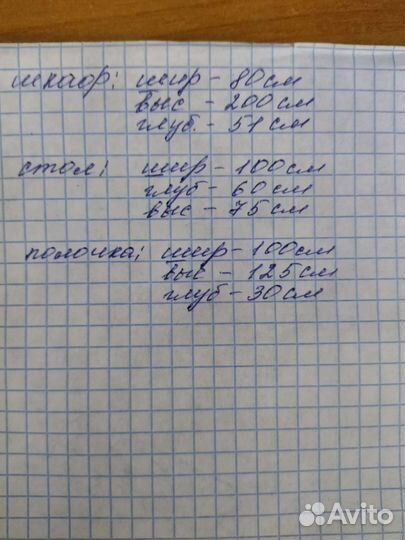 шкаф: шир - 80см
выс - 200см
глуб. - 51см
стол: шир - 100см
глуб - 60см
выс - 75см
полочка: шир - 100см
выс - 125см
глуб - 30см
Avito